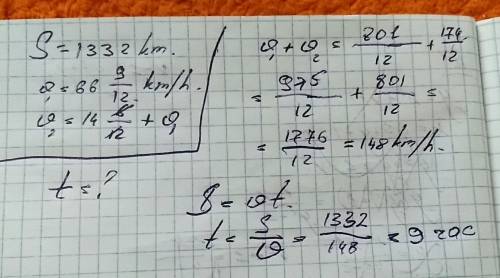 S = 1332 km.
ϑ₁ = 66 9/12 km/h.
ϑ₂ = 14 6/12 + ϑ₁
t = ?
ϑ₁ + ϑ₂ = 801/12 + 174/12
= 975/12 + 801/12 =
= 1776/12 = 148 km/h.
S = ϑt.
t = S/ϑ = 1332/148 = 9 час